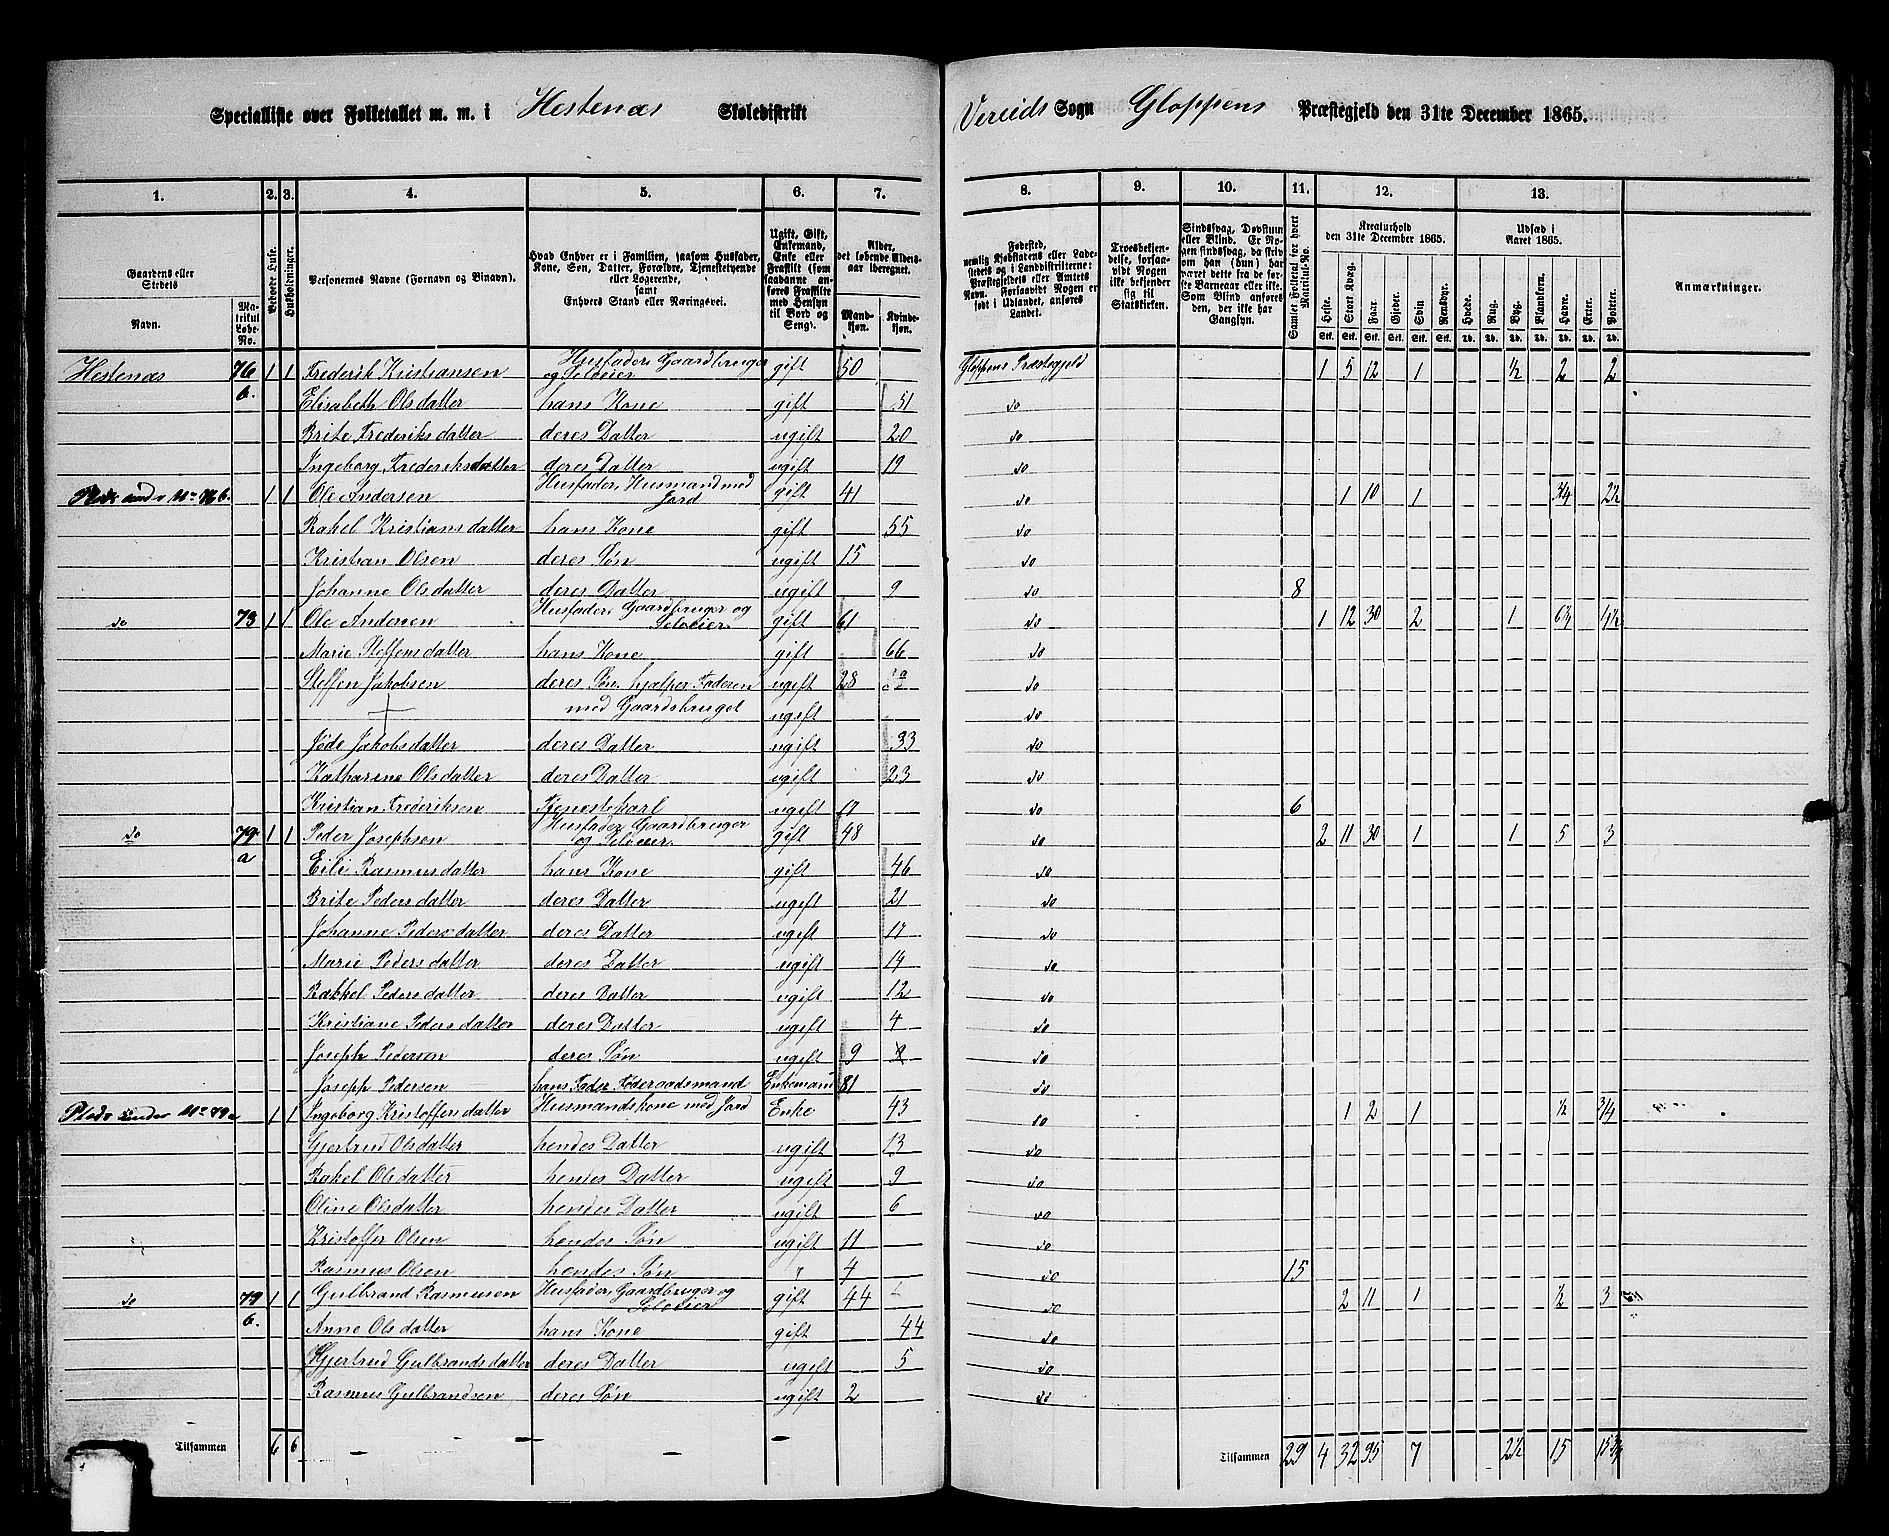 Specialliste over Folketallet m. m. i Hestenæs Skoledistrikt Vereids Sogn Gloppens Præstegjeld den 31te December 1865.
1. 2. 3. 4. 5. 6. 7. 8. 9. 10. 11. 12. 13.
Gaardens eller Stedets Navn. Matrikul Løbe-No.
Beboede Huse.
Husholdninger.
Personernes Navne (Fornavn og Binavn).
Hvad Enhver er i Familien, saasom Husfader, Kone, Søn, Datter, Forældre, Tjenestetyende eller Logerende, samt Enhvers Stand eller Næringsvei.
Ugift, Gift, Enkemand, Enke eller Fraskilt (som saadanne anføres Fraskilte med Hensyn til Bord og Seng).
Alder, det løbende Alders-aar iberegnet. Mandkjøn. Kvindekjøn.
Fødested, nemlig Kjøbstadens eller Ladestedets og i Landdistrikterne: Præstegjeldets eller Amtets Navn. Forsaavidt Nogen er født i Udlandet, anføres Landet.
Troesbekjendelse, forsaavidt Nogen ikke bekjender sig til Statskirken.
Sindssvag, Døvstum eller Blind. Er Nogen sindssvag, da skrives om han (hun) har været dette fra de første Barneaar eller ikke. Som Blind anføres den, der ikke har Gangsyn.
Samlet Folketal for hvert Matrikul-No.
Kreaturhold den 31te December 1865.
Heste. Stort Kvæg. Faar. Gjeder. Svin. Rensdyr.
Udsæd i Aaret 1865.
Hvede. Rug. Byg. Blandkorn. Havre. Erter. Poteter.
Anmærkninger.
Hestenæs 76 b. 1 1 Frederik Kristiansen Husfader, Gaardbruger og Selveier gift 50 Gloppens Præstegjeld 1 5 12 1 ½ 2 2
Elisabeth Olsdatter hans Kone gift 51 do
Brite Frederiksdatter deres Datter ugift 20 do
Ingeborg Frederiksdatter deres Datter ugift 19 do
Plds under No 76 b. 1 1 Ole Andersen Husfader, Husmand med Jord gift 41 do 1 10 1 3/4 2½
Rakel Kristiansdatter hans Kone gift 55 do
Kristian Olsen deres Søn ugift 15 do
Johanne Olsdatter deres Datter ugift 9 do 8
do 73 1 1 Ole Andersen Husfader, Gaardbruger og Selveier gift 61 do 1 12 30 2 1
Marie Steffensdatter hans Kone gift 66 do
Steffen Jakobsen deres Søn, hjelper Faderen ugift 28 do
med Gaardsbruget ugift do
Jøde Jakobsdatter deres Datter ugift 33 do
Katharine Olsdatter deres Datter ugift 23 do
Kristian Frederiksen Tjenestekarl ugift 17 do 6
do 79 a 1 1 Peder Josephsen Husfader, Gaardbruger og Selveier gift 48 do 2 11 30 1 1 5 3
Eili Rasmusdatter hans Kone gift 46 do
Brite Pedersdatter deres Datter ugift 21 do
Johanne Pedersdatter deres Datter ugift 17 do
Marie Pedersdatter deres Datter ugift 14 do
Rakkel Pedersdatter deres Datter ugift 12 do
Kristiane Pedersdatter deres Datter ugift 4 do
Joseph Pedersen deres Søn ugift 9 do
Joseph Pedersen hans Fader Føderaadsmand Enkemand 81 do
Plads under No 79 a 1 1 Ingeborg Kristoffersdatter Husmandskone med Jord Enke 43 do 1 2 1 ½ 3/4
Gjertrud Olsdatter hendes Datter ugift 13 do
Rakel Olsdatter hendes Datter ugift 9 do
Oline Olsdatter hendes Datter ugift 6 do
Kristoffer Olsen hendes Søn ugift 11 do
Rasmus Olsen hendes Søn " 4 do 15
do 79 b. 1 1 Gulbrand Rasmusen Husfader, Gaardbruger og Selveier gift 44 do 2 11 1 ½ 3
Anne Olsdatter hans Kone gift 44 do
Gjertrud Gulbrandsdatter deres Datter ugift 5 do
Rasmus Gulbrandsen deres Søn ugift 2 do
Tilsammen 6 6 – – – Tilsammen 29 4 32 95 7 2½ 15 15 3/4